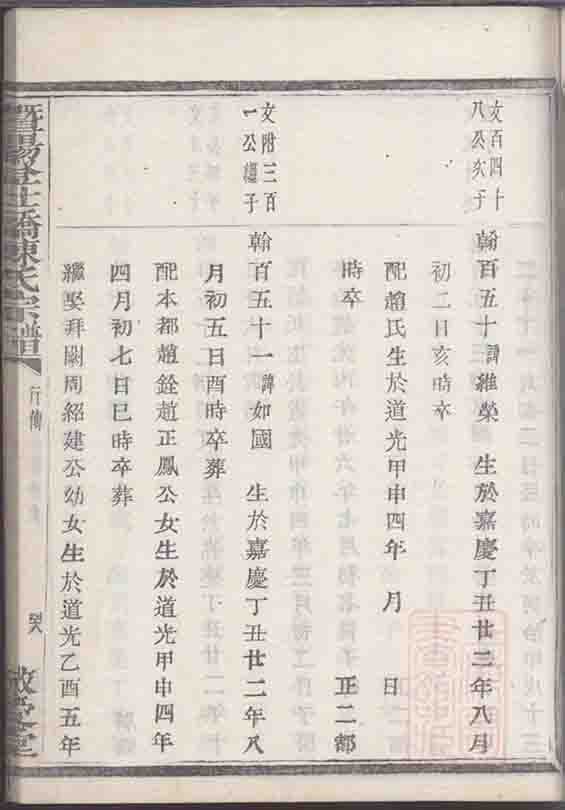 文百四十
八公亥子
翰百五十諱維榮 生於嘉慶丁丑廿二年八月
初二日亥時卒
配趙氏生於道光甲申四年 月 日
時卒 正二都
文附三百
一公槿子
翰百五十一諱如國 生於嘉慶丁丑廿二年八
月初五日酉時卒葬
配本都趙銓趙正鳳公女生於道光甲申四年
四月初七日巳時卒葬
繼娶拜闕周紹建公幼女生於道光乙酉五年
暨陽 橋陳氏宗譜
行傳
敬 堂